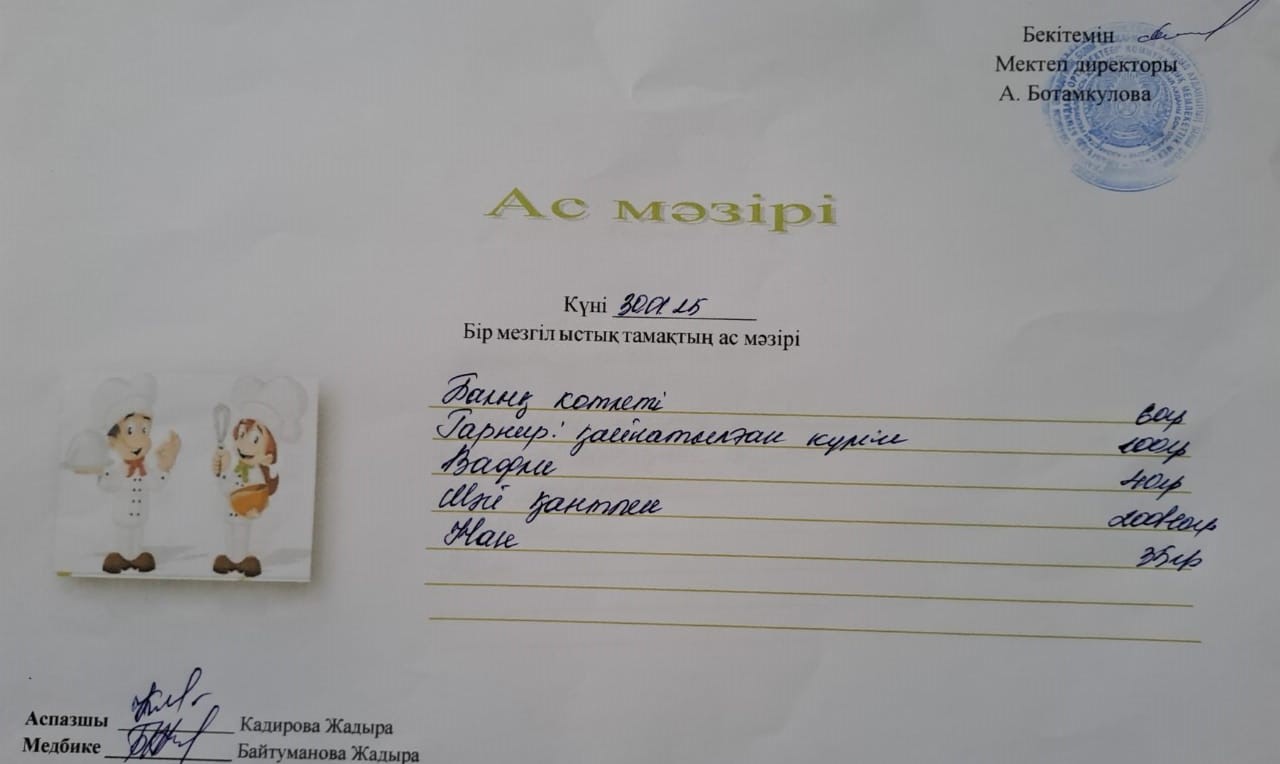 Бекітемін
Мектеп директоры
А. Ботамкулова
Ас мәзірі
Күні 30.01.25
Бір мезгіл ыстық тамақтың ас мәзірі
Балық котлеті 60гр
Гарнир: қайнатылған күріш 100гр
Вафли 40гр
Шәй қантпен
Нан 35гр
Аспазшы Кадирова Жадыра
Медбике Байтуманова Жадыра